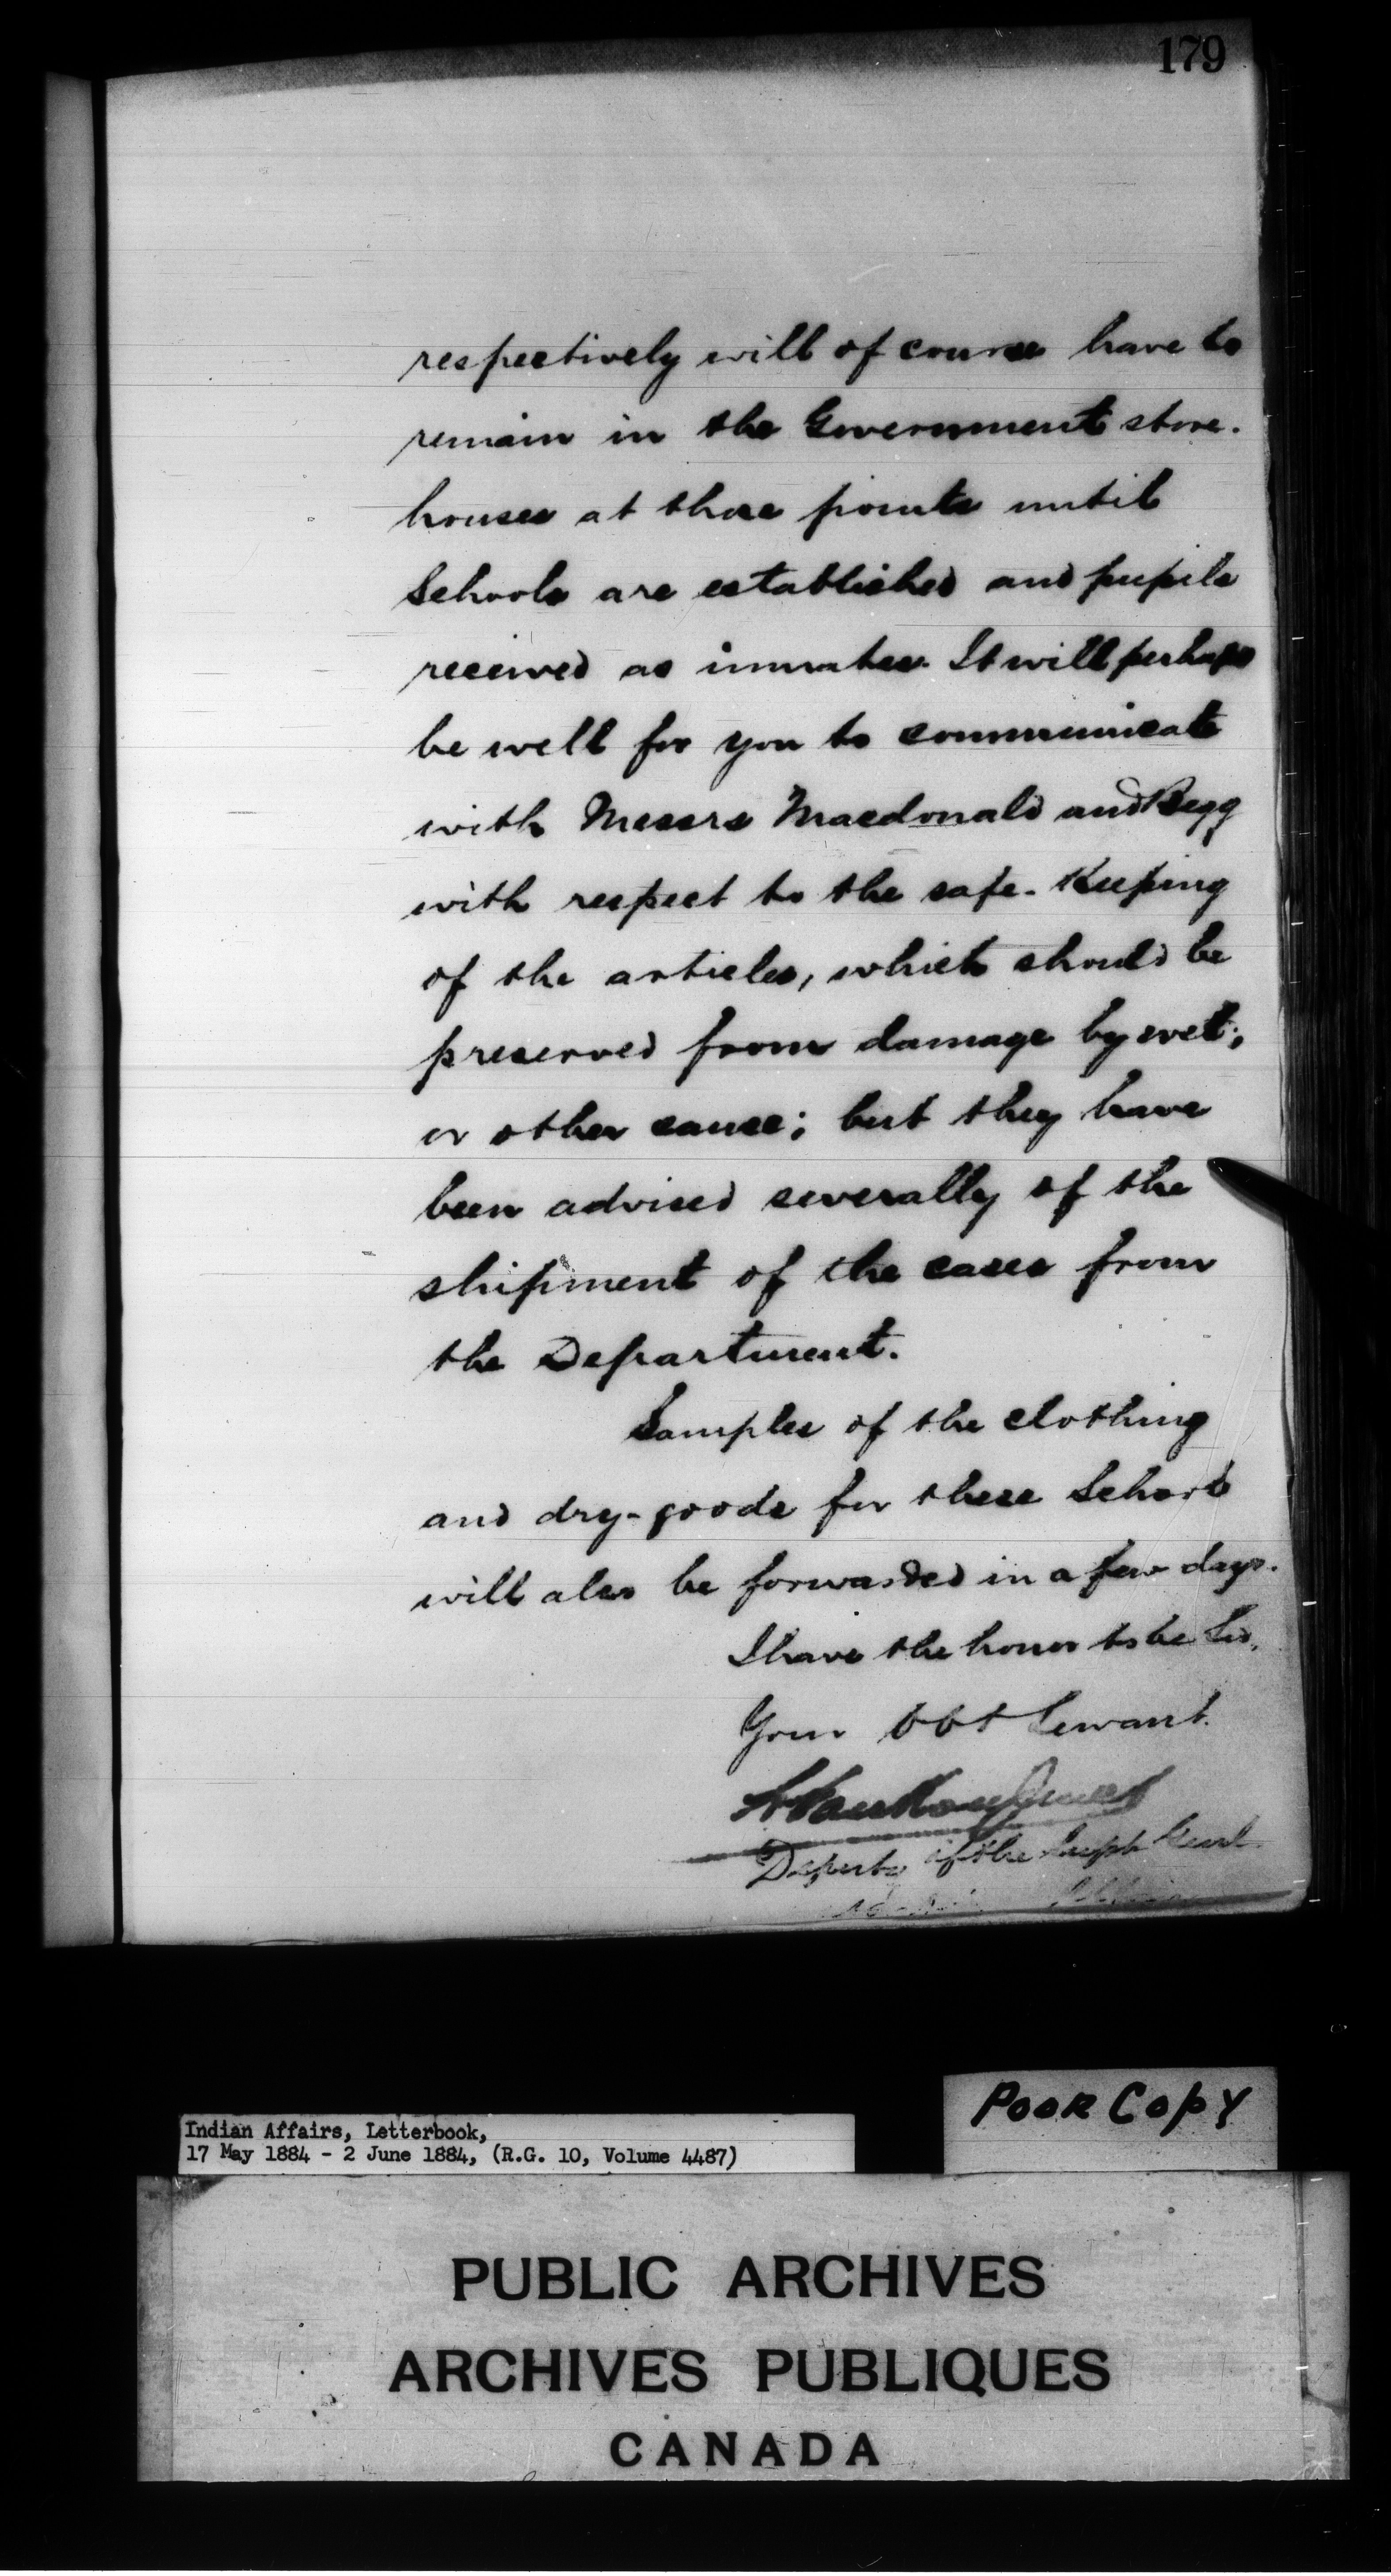 179
respectively will of course have to
remain in the Government store-
houses at those points until
Schools are established and pupils
received as inmates. It will perhaps
be well for you to communicate
with Messrs Macdonald and Begg
with respect to the safe-keeping
of the articles, which should be
preserved from damage by wet,
or other cause; but they have
been advised severally of the
shipment of the cases from
the Department.
Samples of the clothing
and dry-goods for these Schools
will also be forwarded in a few days.
I have the honor to be Sir,
Your Obt Servant.
L. VanKoughnet
Deputy of the Supt Genl.
Poor Copy
Indian Affairs, Letterbook,
17 May 1884 - 2 June 1884, (R.G. 10, Volume 4487)
PUBLIC ARCHIVES
ARCHIVES PUBLIQUES
CANADA